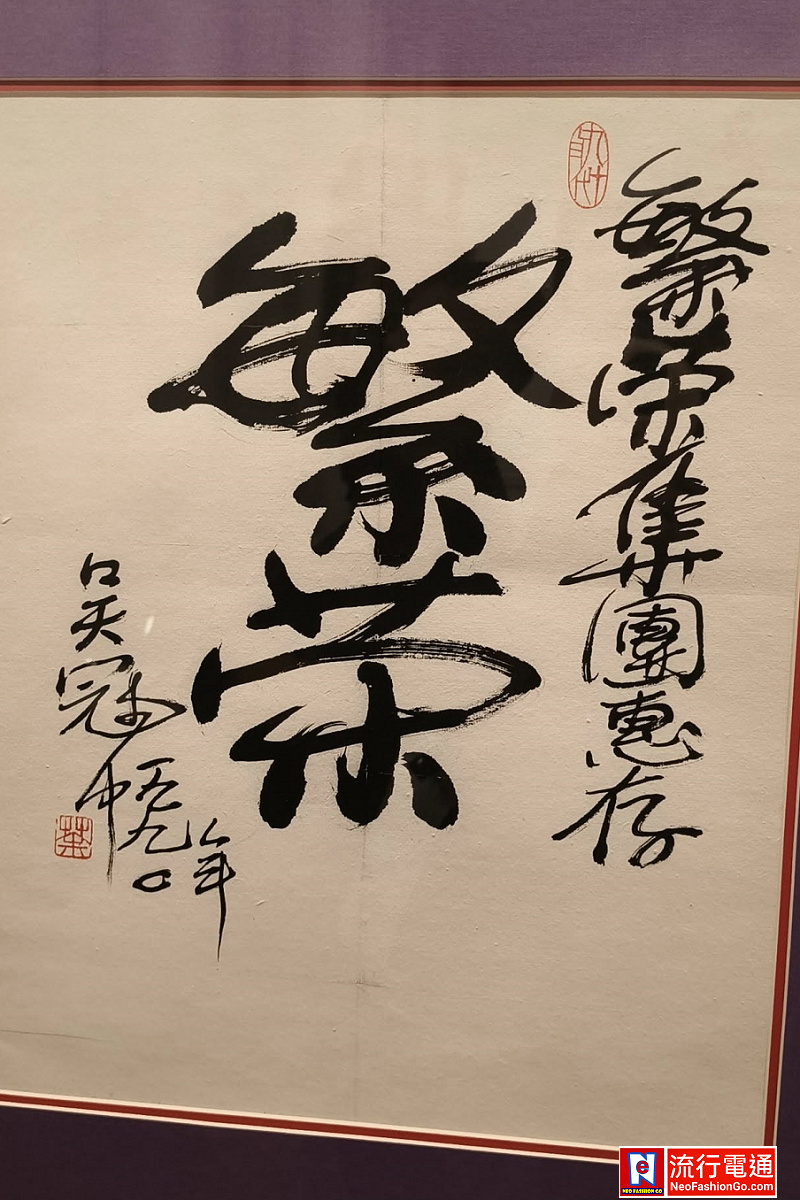 繁榮集團惠存
繁榮
吳冠中
一九九〇年
流行電通
NEO FASHION GO
NeoFashionGo.com